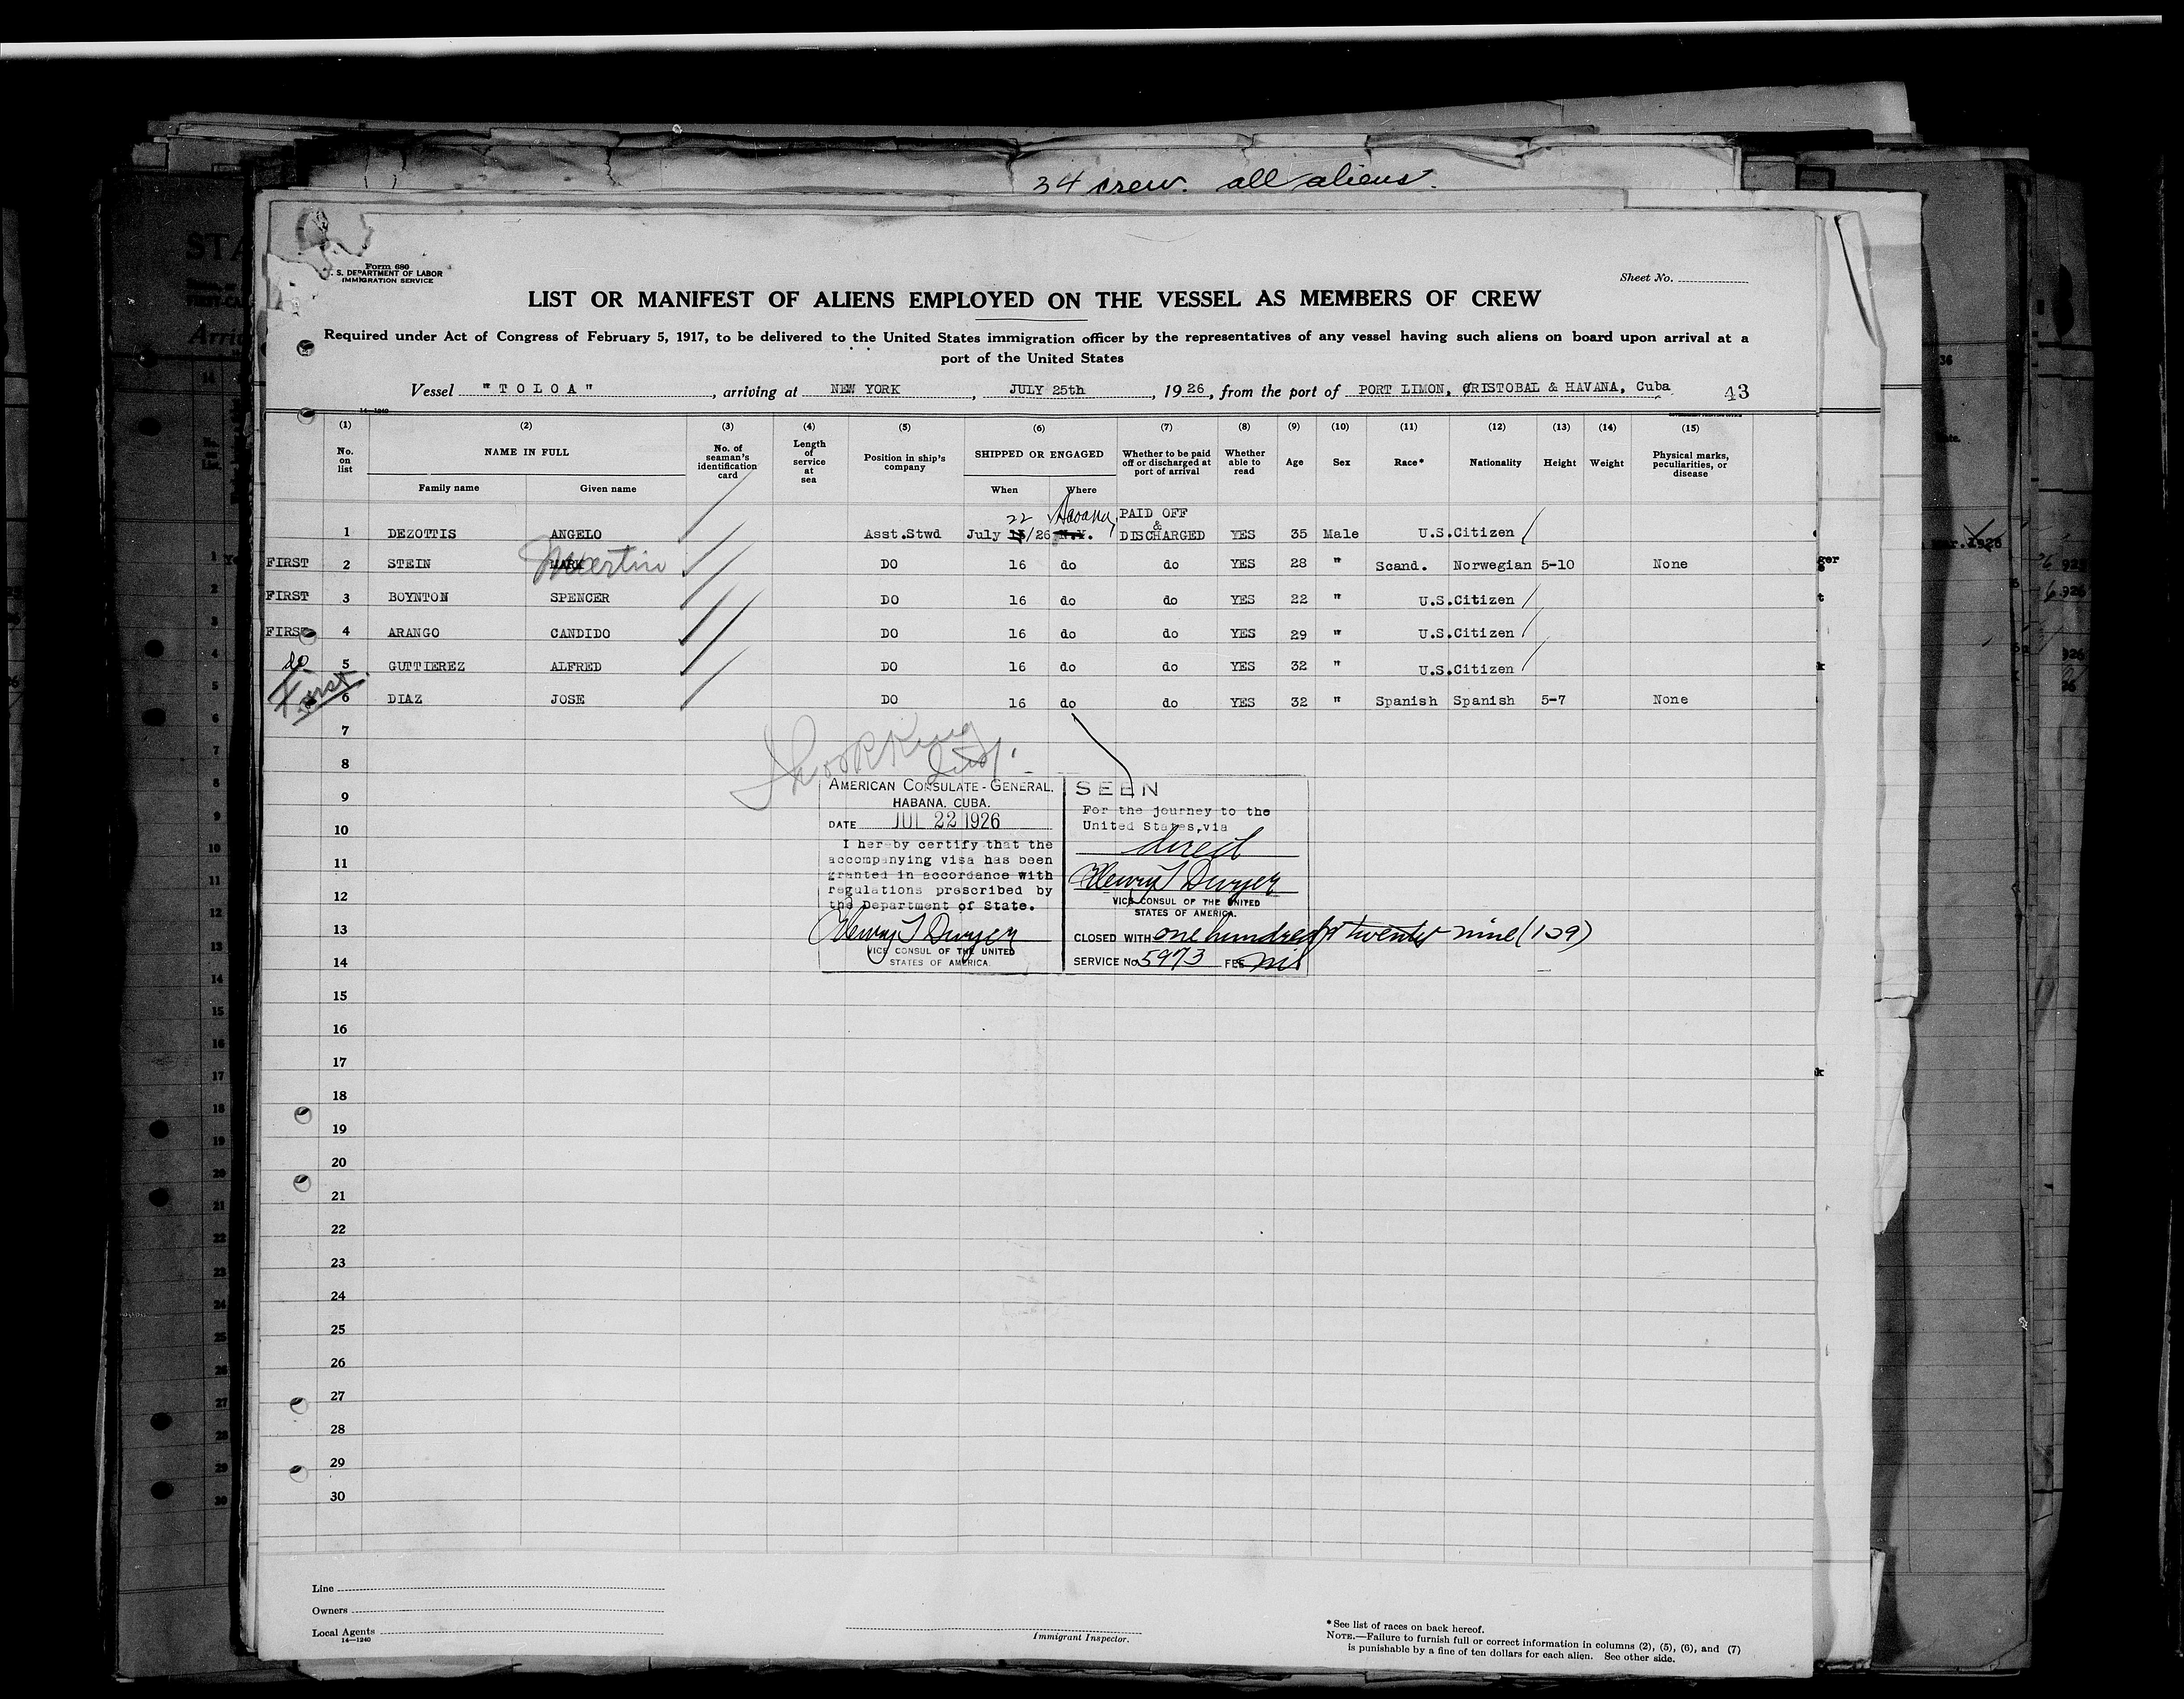 34 crew. all aliens.
Form 680
S. DEPARTMENT OF LABOR
IMMIGRATION SERVICE
Sheet No.
LIST OR MANIFEST OF ALIENS EMPLOYED ON THE VESSEL AS MEMBERS OF CREW
Required under Act of Congress of February 5, 1917, to be delivered to the United States immigration officer by the representatives of any vessel having such aliens on board upon arrival at a
port of the United States
Vessel "TOLOA", arriving at NEW YORK, JULY 25th, 1926, from the port of PORT LIMON, CRISTOBAL & HAVANA, Cuba 43
14-1240
(1) (2) (3) (4) (5) (6) (7) (8) (9) (10) (11) (12) (13) (14) (15)
No. on list NAME IN FULL No. of seaman's identification card Length of service at sea Position in ship's company SHIPPED OR ENGAGED Whether to be paid off or discharged at port of arrival Whether able to read Age Sex Race* Nationality Height Weight Physical marks, peculiarities, or disease
Family name Given name When Where
22 Havana PAID OFF
1 DEZOTTIS ANGELO Asst.Stwd July /26 N.Y. & DISCHARGED YES 35 Male U.S.Citizen
FIRST 2 STEIN MARK Martin DO 16 do do YES 28 " Scand. Norwegian 5-10 None
FIRST 3 BOYNTON SPENCER DO 16 do do YES 22 " U.S.Citizen
FIRST 4 ARANGO CANDIDO DO 16 do do YES 29 " U.S.Citizen
do 5 GUTTIEREZ ALFRED DO 16 do do YES 32 " U.S.Citizen
First 6 DIAZ JOSE DO 16 do do YES 32 " Spanish Spanish 5-7 None
7
8
9
10
11
12
13
14
15
16
17
18
19
20
21
22
23
24
25
26
27
28
29
30
AMERICAN CONSULATE-GENERAL.
HABANA, CUBA.
DATE JUL 22 1926
I hereby certify that the
accompanying visa has been
granted in accordance with
regulations prescribed by
the Department of State.
Henry T Dwyer
VICE CONSUL OF THE UNITED
STATES OF AMERICA.
SEEN
For the journey to the
United States, via
direct
Henry T Dwyer
VICE CONSUL OF THE UNITED
STATES OF AMERICA.
CLOSED WITH one hundred & twenty nine (129)
SERVICE No 5973 FEE nil
Line
Owners
Local Agents
14-1240
Immigrant Inspector.
*See list of races on back hereof.
NOTE.—Failure to furnish full or correct information in columns (2), (5), (6), and (7)
is punishable by a fine of ten dollars for each alien. See other side.